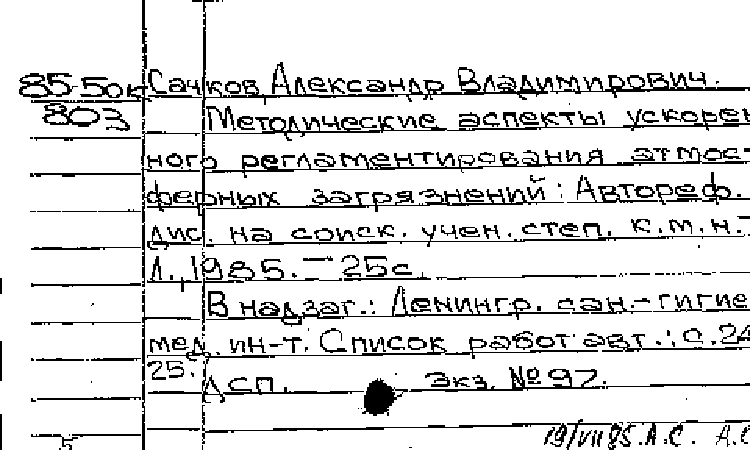 85-50к Сачков Александр Владимирович.
803 Методические аспекты ускорен
ного регламентирования атмос-
ферных загрязнений: Автореф.
дис. на соиск. учен. степ. к.м.н.-
Л., 1985. – 25с.
В надзаг.: Ленингр. сан.-гигие
мед. ин-т. Список работ авт.: с.24
25.
ДСП. Экз. №97.
19/VII 85. А.С.
5